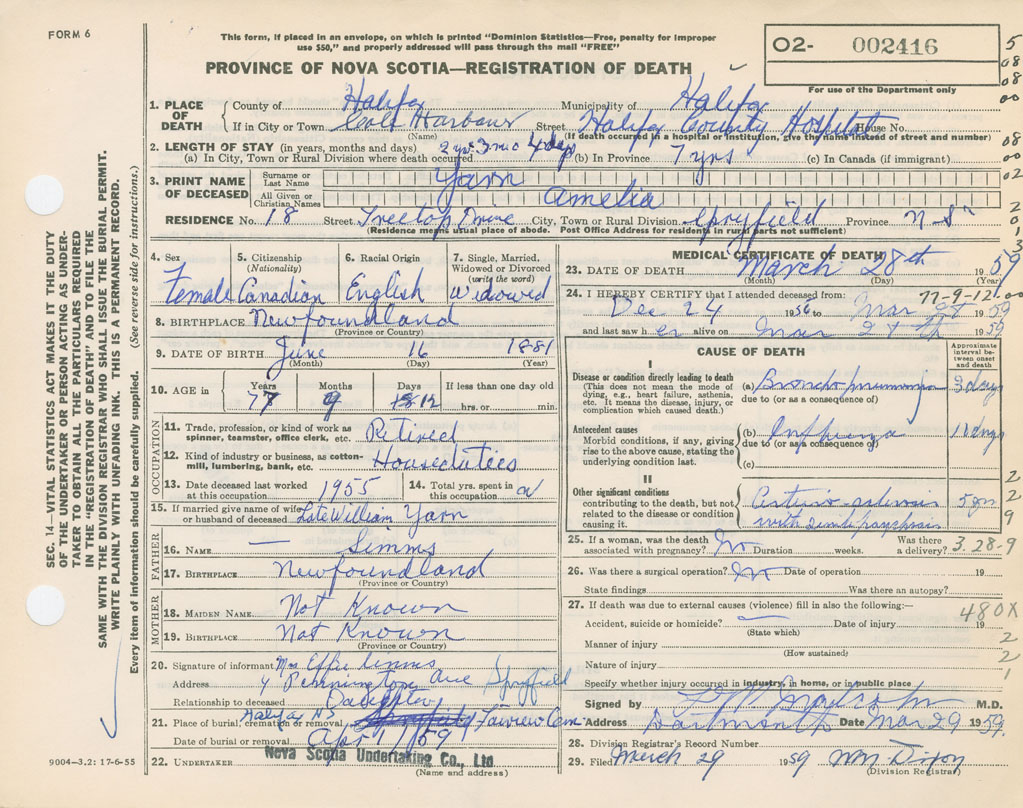 FORM 6
This form, if placed in an envelope, on which is printed "Dominion Statistics—Free, penalty for improper
use $50," and properly addressed will pass through the mail "FREE"
O2- 002416
For use of the Department only
PROVINCE OF NOVA SCOTIA—REGISTRATION OF DEATH
1. PLACE OF DEATH
County of Halifax Municipality of Halifax
If in City or Town Cole Harbour Street Halifax County Hospital House No.
(Name) (If death occurred in a hospital or institution, give the name instead of street and number)
2. LENGTH OF STAY (in years, months and days)
(a) In City, Town or Rural Division where death occurred 2 yrs 3 mo 4 days (b) In Province 7 yrs (c) In Canada (if immigrant)
3. PRINT NAME OF DECEASED
Surname or Last Name Yarn
All Given or Christian Names Amelia
RESIDENCE No. 18 Street Treetop Drive City, Town or Rural Division Spryfield Province N-S
(Residence means usual place of abode. Post Office Address for residents in rural parts not sufficient)
4. Sex Female
5. Citizenship (Nationality) Canadian
6. Racial Origin English
7. Single, Married, Widowed or Divorced (write the word) Widowed
8. BIRTHPLACE Newfoundland
(Province or Country)
9. DATE OF BIRTH June 16 1881
(Month) (Day) (Year)
10. AGE in Years 77 Months 9 Days 12 If less than one day old
hrs. or min.
OCCUPATION
11. Trade, profession, or kind of work as spinner, teamster, office clerk, etc. Retired
12. Kind of industry or business, as cotton-mill, lumbering, bank, etc. Houseduties
13. Date deceased last worked at this occupation 1955
14. Total yrs. spent in this occupation
15. If married give name of wife or husband of deceased Late William Yarn
FATHER
16. NAME — Simms
17. BIRTHPLACE Newfoundland
(Province or Country)
MOTHER
18. MAIDEN NAME Not Known
19. BIRTHPLACE Not Known
(Province or Country)
20. Signature of informant Mrs Effie Simms
Address 4 Pennington Ave Spryfield
Relationship to deceased Daughter
21. Place of burial, cremation or removal Halifax NS Fairview Cem
Date of burial or removal Apr 1/59
22. UNDERTAKER Nova Scotia Undertaking Co., Ltd
(Name and address)
MEDICAL CERTIFICATE OF DEATH
23. DATE OF DEATH March 28th 1959
(Month) (Day) (Year)
77-9-12
24. I HEREBY CERTIFY that I attended deceased from:
Dec 24 1956 to Mar 28 1959
and last saw her alive on Mar 28th 1959
CAUSE OF DEATH
Approximate interval between onset and death
I
Disease or condition directly leading to death
(This does not mean the mode of dying, e.g., heart failure, asthenia, etc. It means the disease, injury, or complication which caused death.)
(a) Bronchopneumonia 3 days
due to (or as a consequence of)
Antecedent causes
Morbid conditions, if any, giving rise to the above cause, stating the underlying condition last.
(b) Influenza days
due to (or as a consequence of)
(c)
II
Other significant conditions
contributing to the death, but not related to the disease or condition causing it.
Arterio sclerosis 5 yrs
with senile psychosis
25. If a woman, was the death associated with pregnancy? No Duration weeks. Was there a delivery?
3-28-9
26. Was there a surgical operation? No Date of operation 19
State findings Was there an autopsy?
27. If death was due to external causes (violence) fill in also the following:—
480X
Accident, suicide or homicide? — Date of injury 19
(State which)
Manner of injury
(How sustained)
Nature of injury
Specify whether injury occurred in industry, in home, or in public place
Signed by M.D.
Address Dartmouth Date Mar 29 1959.
28. Division Registrar's Record Number
29. Filed March 29 1959 Wm Dixon
(Division Registrar)
9004—3.2: 17-6-55
SEC. 14—VITAL STATISTICS ACT MAKES IT THE DUTY
OF THE UNDERTAKER OR PERSON ACTING AS UNDER-
TAKER TO OBTAIN ALL THE PARTICULARS REQUIRED
IN THE "REGISTRATION OF DEATH" AND TO FILE THE
SAME WITH THE DIVISION REGISTRAR WHO SHALL ISSUE THE BURIAL PERMIT.
WRITE PLAINLY WITH UNFADING INK. THIS IS A PERMANENT RECORD.
Every item of information should be carefully supplied. (See reverse side for instructions.)